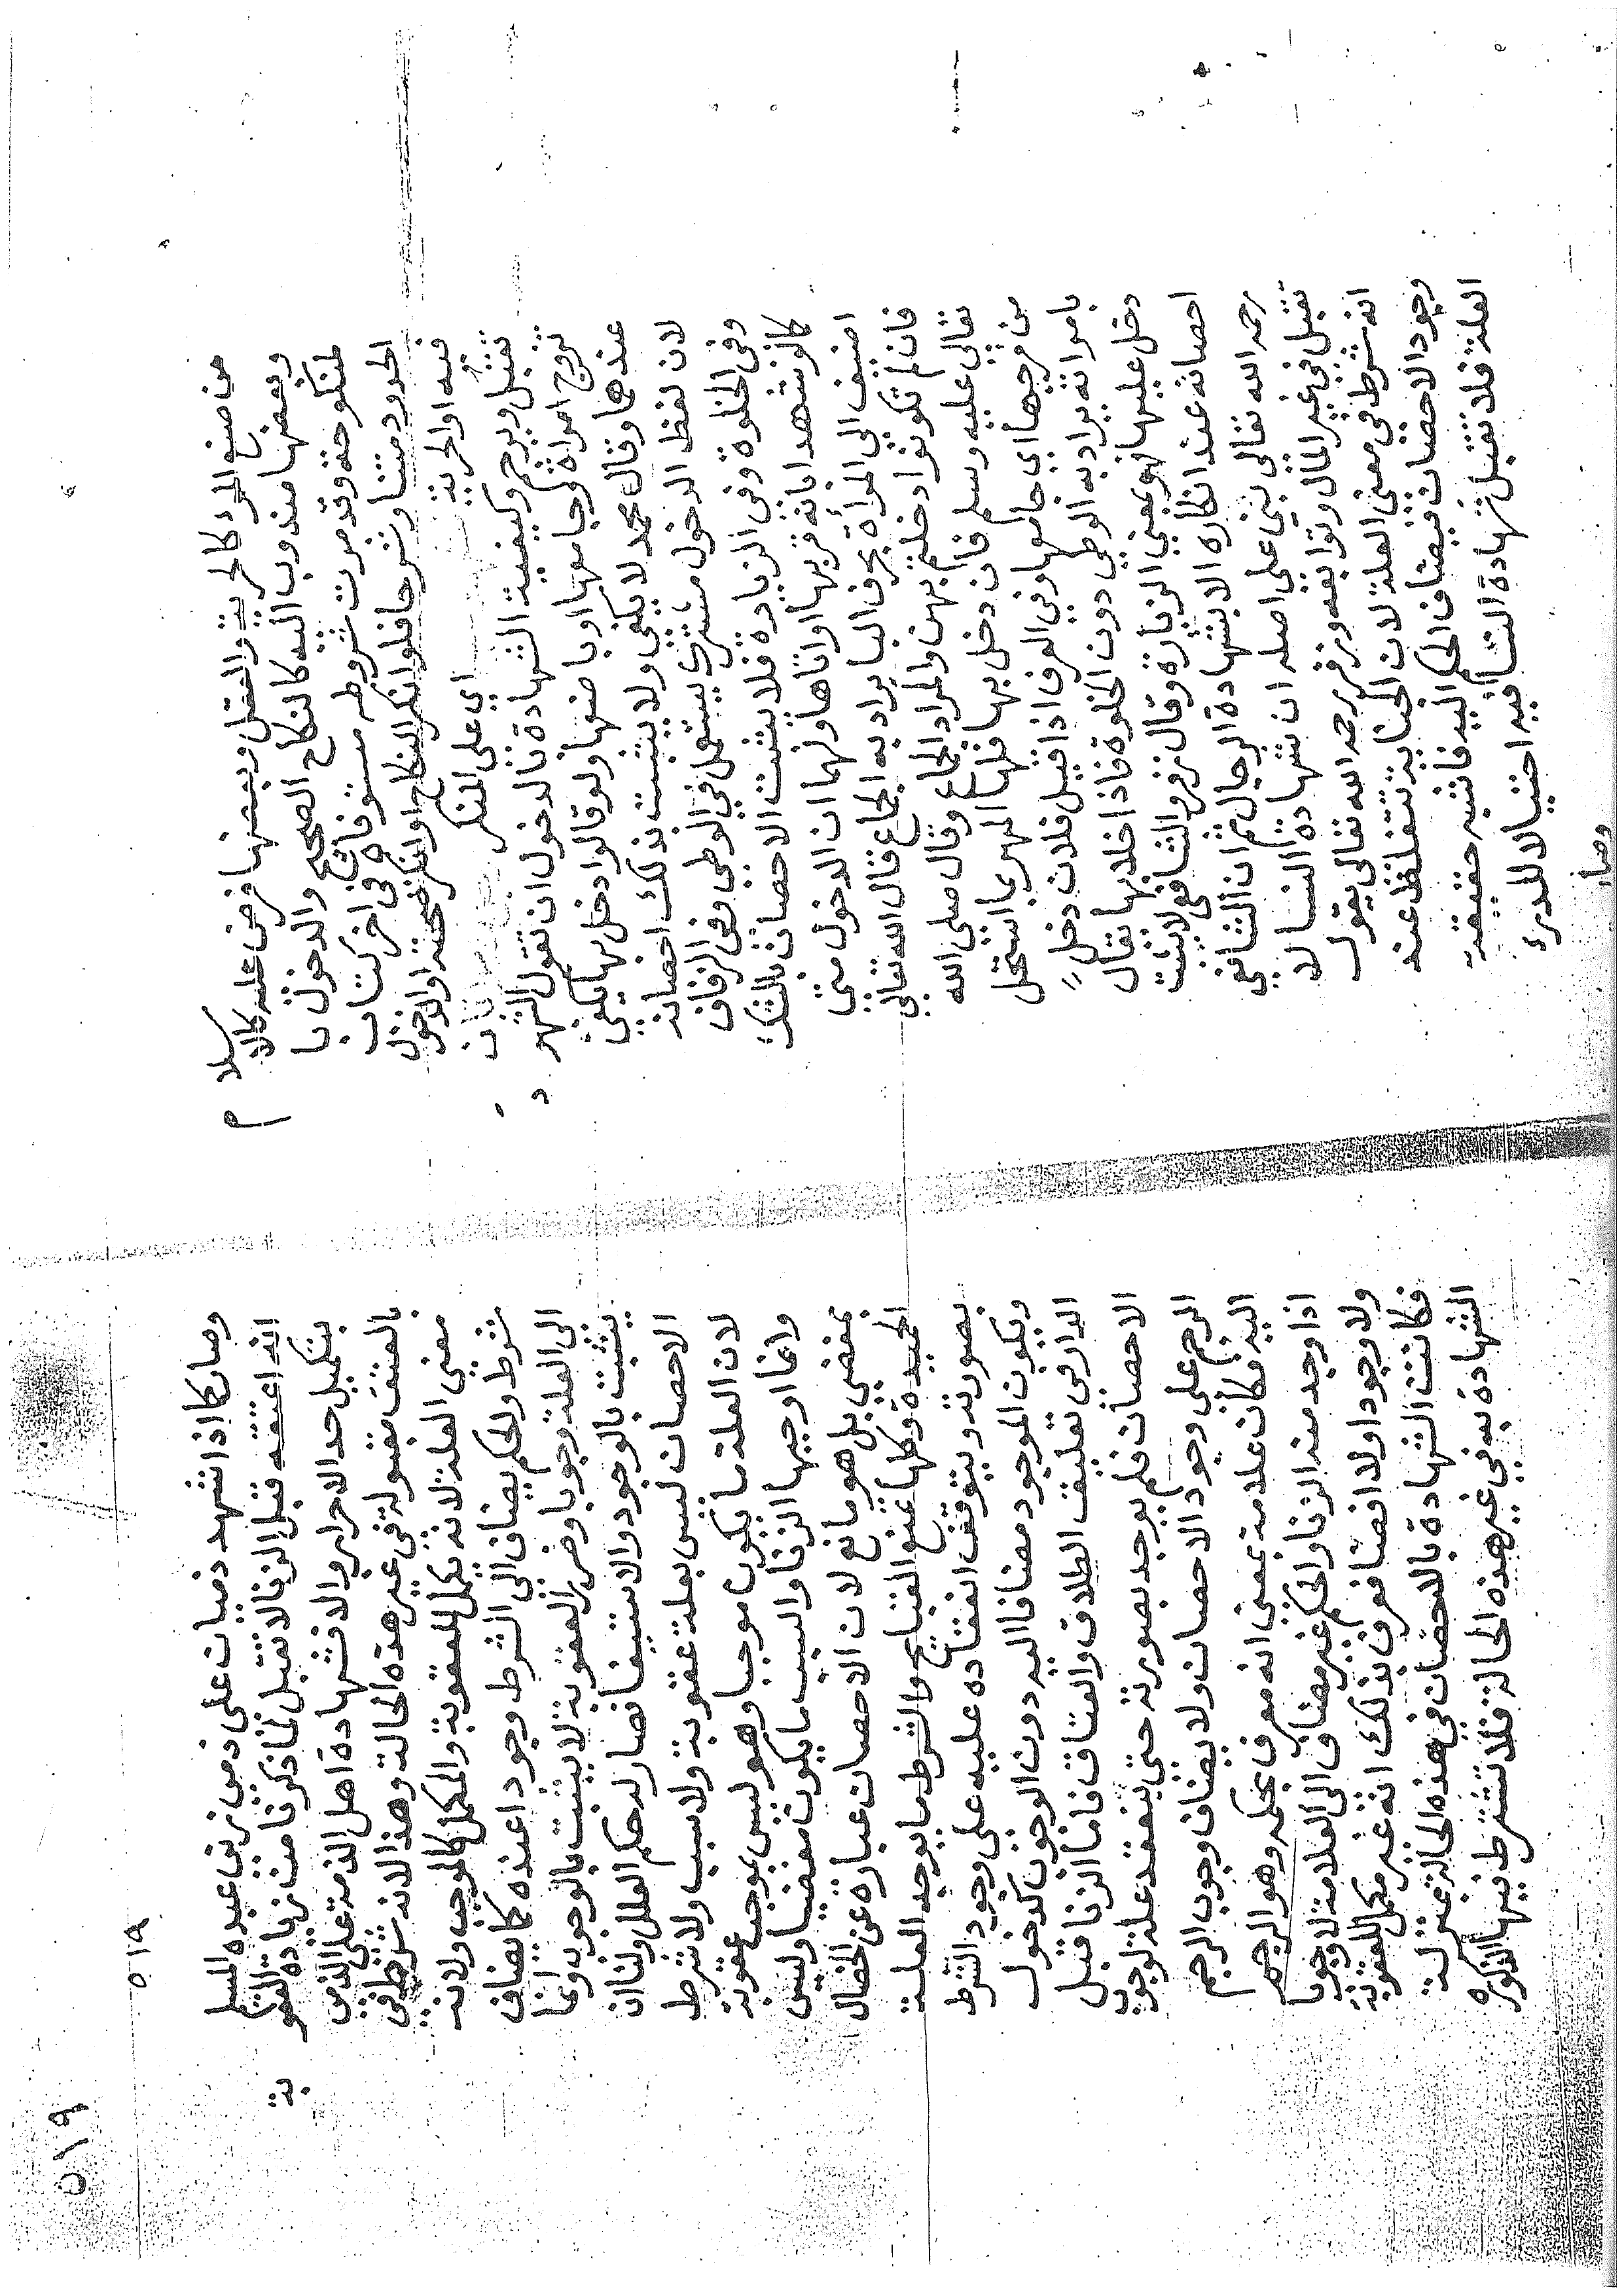 من صنع المرء كالحرية والعقل وبعضها فرض عليه كالا سلا م
وبعضها مندوب اليه كالنكاح الصحيح والدخول با
لمنكوحة وقد مرت شروطه مستوفاة في اخر كتاب
الحدود متنا وشرحا فلو انكر النكاح او انكر صحته او الدخول
فيه او الحرية اي على المنكر
تقبل ويرجم وكيفية الشهادة بالدخول ان تقول الشهو د
تزوج امراة وجامعها او باضعها ولو قالوا دخل بها يكفي
عندهما وقال محمد لا يكفي ولا يثبت بذلك احصانه
لان لفظ الدخول مشترك يستعمل في الوطي وفي الزفاف
وفي الخلوة وفي الزيارة فلا يثبت الاحصان بالشك
كالو شهدا بانه قربها او اتاها ولهما ان الدخول متى
اضيف الى المرأة بحرف البا يراد به الجماع قال الله تعالى
فان لم تكونوا دخلتم بهن والمراد الجماع وقال صلى الله
تعالى عليه وسلم فان دخل بها فلها المهر بما استحل
من فرجها اي جامعها وفي العرف اذا قيل فلان دخل
بامراته يراد به الوطي دون الخلوة فاذا خلا بها يقال
دخل عليها فهو بمعنى الزيارة وقال زفر والشافعي لا يثبت
احصانه عند انكاره الا بشهادة الرجال ثم ان الشافعي
رحمه الله تعالى بنى على اصله ان شهادة النسا لا
تقبل في غير المال وتوابعه وزفر رحمه الله تعالى يقول
انه شرط في معنى العلة لان الجناية تتغلظ عند
وجود الاحصان فيضاف الحكم اليه فاشبه حقيقة
العلة فلا تقبل شهادة النسا فيه احتيالا للدرء
وصار
٥١٩
٥١٩
وصار كما اذا شهد ذميان على ذمي زنى عبده المسلم
انه اعتقه قبل الزنا لا تقبل لما ذكرنا من زيادة العقو بة
بتكميل حد الاحرار والا فشهادة اهل الذمة على الذمي
بالعتق مقبولة في غير هذه الحالة وهذا لانه شرط في
معنى العلة لانه يكمل للعقوبة والمكمل كالموجب ولانه
شرط والحكم يضاف الى الشرط وجودا عنده كما يضاف
الى العلة وجوبا وضرر العقوبة لا يثبت بالوجوب وانما
يثبت بالوجود والاستيفا فصار له حكم العلل ولنا ان
الاحصان ليس بعلة عقوبة ولا سبب ولا شرط
لان العلة ما يكون موجبا وهو ليس بموجب عقوبة
وانما اوجبها الزنا والسبب ما يكون مفضيا وليس
بمفضي بل هو مانع لان الاحصان عبارة عن الخصال
الحميدة وكلها تمنع القبايح والشرط ما يوجد العلة
بصورته ويتوقف انعقاده عليه على وجود الشرط
ويكون الموجود مضافا اليه دون الوجوب كدخول
الدار في تعليق الطلاق والعتاق فاما الزنا قبل
الاحصان فلم يوجد بصورته حتى ينعقد علة لوجوب
الرجم على وجود الاحصان ولا يضاف وجوب الرجم
اليه فكان علامة بمعنى انه معرف بحكمه وهو الرجم
اذا وجد منه الزنا والحكم غير مضاف الى العلامة لا وجوبا
ولا وجودا ولا افضا فعرف بذلك انه غير مكمل للعقوبة
فكانت الشهادة بالاحصان في هذه الحالة بمنزلة
الشهادة به في غير هذه الحالة فلا تشترط فيها الذكورة